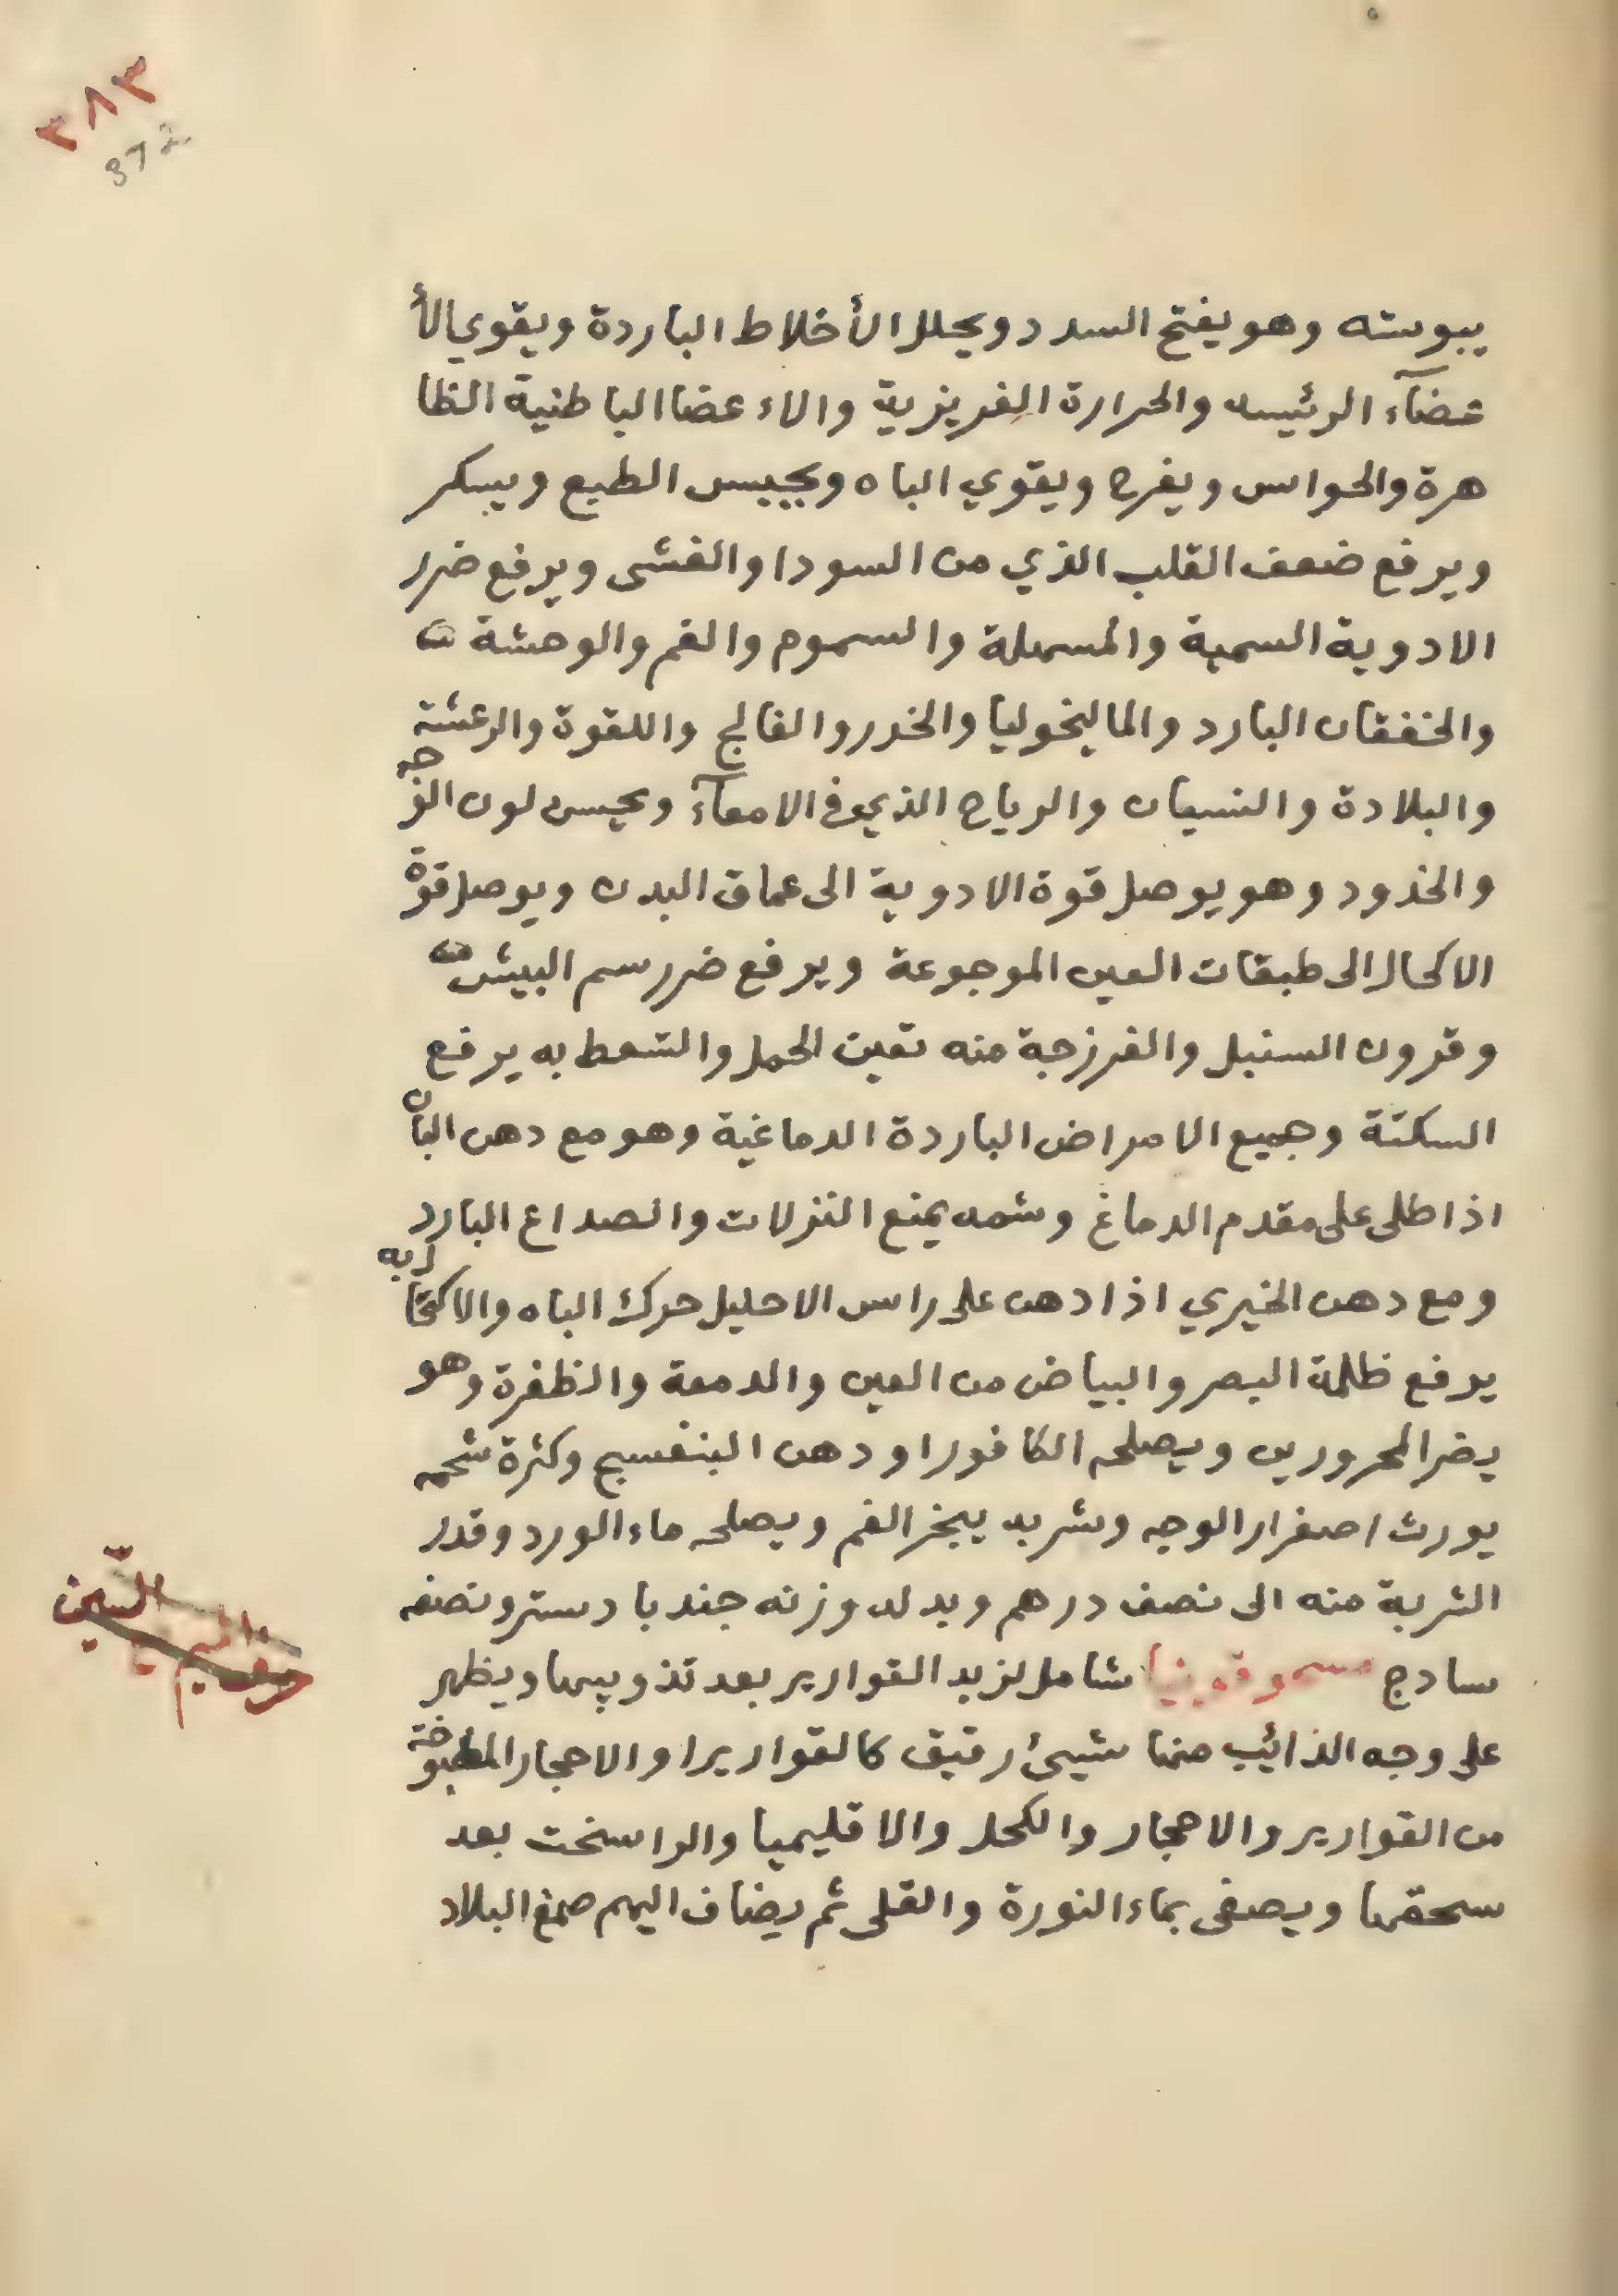 ٣٨٣
372
يبوسته وهو يفتح السدد ويحلل الأخلاط الباردة ويقوي الأ
عضآء الرئيسه والحرارة الغريزية والاء عضا الباطنية الظا
هرة والحواس ويفرح ويقوي الباه ويحبس الطبع ويسكر
ويرفع ضعف القلب الذي من السودا والغشى ويرفع ضرر
الادوية السمية والمسهلة والسموم والغم والوحشة
والخفقان البارد والماليخوليا والخدر والفالج واللقوة والرعشة
والبلادة والنسيان والرياح الذي في الامعآء ويحسن لون الوجه
والخدود وهو يوصل قوة الادوية الى عماق البدن ويوصل قوة
الاكحال الى طبقات العين الموجوعة ويرفع ضرر سم البيش
وقرون السنبل والفرزجة منه تعين الحمل والتسعط به يرفع
السكتة وجميع الامراض الباردة الدماغية وهو مع دهن البان
اذا طلى على مقدم الدماغ وشمه يمنع النزلات والصداع البارد
ومع دهن الخيري اذا دهن على راس الاحليل حرك الباه والاكتحا
ل به
يرفع ظلمة البصر والبياض من العين والدمعة والظفرة وهو
يضر المحرورين ويصلحه الكافور او دهن البنفسج وكثرة شمه
يورث اصفرار الوجه وشربه يبخر الفم ويصلحه ماء الورد وقدر
الشربة منه الى نصف درهم وبدله وزنه جندبادستر ونصفه
سادج مسحوقونيا شامل لزبد القوارير بعد تذويبها ويظهر
على وجه الذائيب منها شيئ رقيق كالقوارير او الاحجار المطبوخة
من القوارير والاحجار والكحل والاقليميا والراسخت بعد
سحقها ويصفى بماء النورة والقلى ثم يضاف اليهم صمغ البلاد
حرف الميم السين